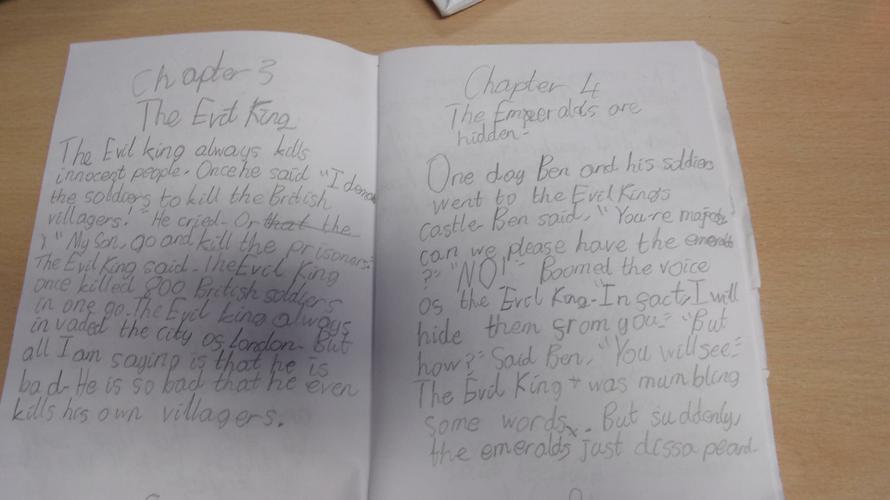 Chapter 3
The Evil King
The Evil king always kills
innocent people. Once he said "I demand
the soldiers to kill the British
villagers!" He cried. Or that the
"My Son, go and kill the prisoners."
The Evil King said. The Evil King
once killed 800 British soldiers
in one go. The Evil king always
invaded the city of London. But
all I am saying is that he is
bad. He is so bad that he even
kills his own villagers.
Chapter 4
The Emperalds are
hidden.
One day Ben and his soldiers
went to the Evil Kings
castle. Ben said, "You're majesty
can we please have the emeralds
?" "NO!" Boomed the voice
of the Evil King. "In fact, I will
hide them from you." "But
how?" Said Ben. "You will see."
The Evil King was mumbling
some words. But suddenly,
the emeralds just dissapeard.